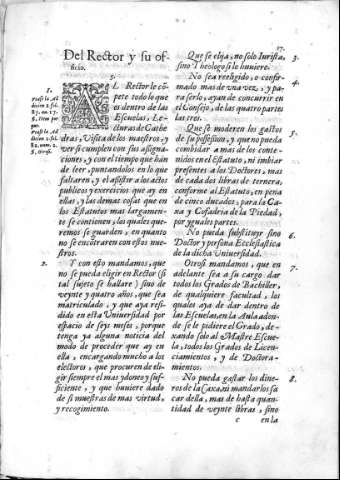 17.
Del Rector y su of-
ficio.
1.
AL Rector le cõ-
pete todo lo que
es dentro de las
Escuelas, Le-
cturas de Cathe
dras, Visita de los maestros, y
ver si cumplen con sus asigna-
ciones, y con el tiempo que han
de leer, puntandolos en lo que
faltaren, y el assistir a los actos
publicos y exercicios que ay en
ellas, y las demas cosas que en
los Estatutos mas largamen-
te se contienen, las quales que-
remos se guarden, en quanto
no se encõtraren con estos nue-
stros.
2.
Y con esto mandamos, que
no se pueda eligir en Rector (si
tal sujeto se hallare) sino de
veynte y quatro años, que sea
matriculado, y que aya resi-
dido en esta Universidad por
espacio de seys meses, porque
tenga ya alguna noticia del
modo de proceder que ay en
ella, encargando mucho a los
electores, que procuren de eli-
gir siempre el mas ydoneo y suf-
ficiente, y que huviere dado
de si muestras de mas virtud,
y recogimiento.
Que se elija, no solo Iurista,
sino Theologo si le huviere.
3.
No sea reeligido, o confir-
mado mas de una vez, y pa-
ra serlo, ayan de concurrir en
el Consejo, de las quatro partes
las tres.
4.
Que se moderen los gastos
de su possession, y que no pueda
combidar a mas de los conte-
nidos en el Estatuto, ni imbiar
presentes a los Doctores, mas
de cada dos libras de ternera,
conforme al Estatuto, en pena
de cinco ducados, para la Ca-
xa y Cofadria de la Piedad,
por yguales partes.
5.
No pueda substituyr sino
Doctor y persona Ecclesiastica
de la dicha Universidad.
6.
Otrosi mandamos, que en
adelante sea a su cargo dar
todos los Grados de Bachiller,
de qualquiere facultad, los
quales aya de dar dentro de
las Escuelas, en la Aula adon-
de se le pidiere el Grado, de-
xando solo al Maestre Escue-
la, todos los Grados de Licen-
ciamientos, y de Doctora-
mientos.
7.
No pueda gastar los dine-
ros de la Caxa, ni mandarlos sa
car della, mas de hasta quan-
tidad de veynte libras, sino
8.
c en la